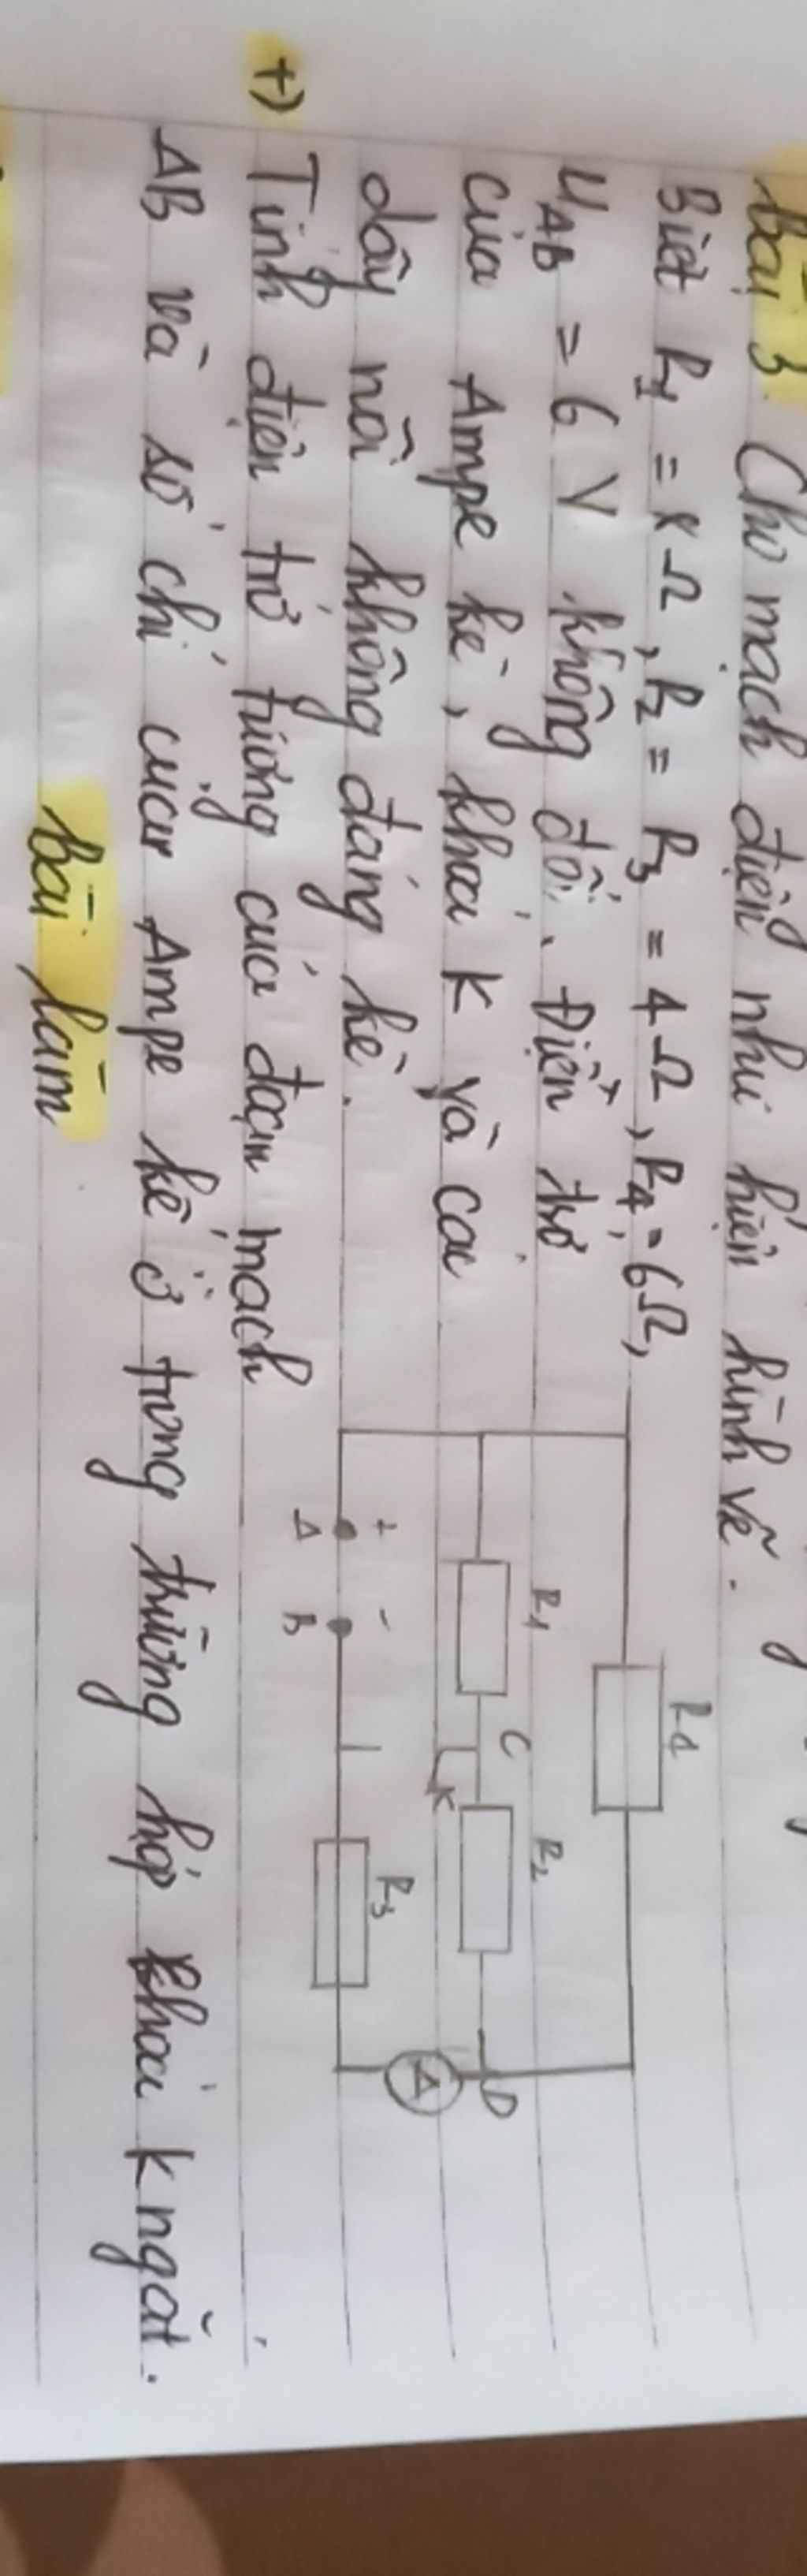 Bài 3. Cho mạch điện như hiện hình vẽ.
Biết R1 = 8Ω, R2 = R3 = 4Ω, R4 = 6Ω,
UAB = 6V không đổi. Điện trở
của Ampe kế, khoá K và các
dây nối không đáng kể.
+) Tính điện trở tương của đoạn mạch
AB và số chỉ của Ampe kế ở trong trường hợp khoá K ngắt.
Bài làm
R4
R1
C
R2
K
D
+
-
A
B
R3
A